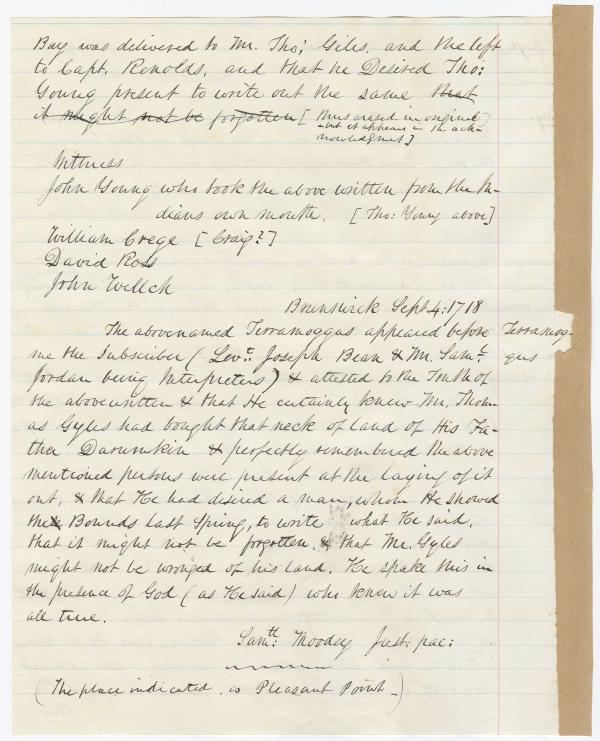 Bay was delivered to Mr. Tho: Giles, and the left
to Capt. Renolds, and that he Desired Tho:
Young present to write out the same that
it might not be forgotten [Thus erased in original
- but it appears in the ack-
nowledgment]
Wittness
John Young who took the above written from the In-
dians own mouth. [Tho: Young above]
William Crege [Craig?]
David Ross
John Wellch
Brunswick Sept 4: 1718
The abovenamed Terramoggus appeared before
Terramog-
gus
me the Subscriber (Levt. Joseph Bean & Mr. Saml.
Jordan being Interpreters) & attested to the Truth of
the abovewritten & that He certainly knew Mr. Thom-
as Gyles had bought that neck of land of His Fa-
ther Darumkin & perfectly remembered the above
mentioned persons were present at the laying of it
out, & that He had desired a man, whom He showed
the Bounds last Spring, to write what He said,
that it might not be forgotten & that Mr. Gyles
might not be wronged of his land. He spake this in
the presence of God (as He said) who knew it was
all true.
Samll: Moodey Just: pac:
(The place indicated is Pleasant Point -)